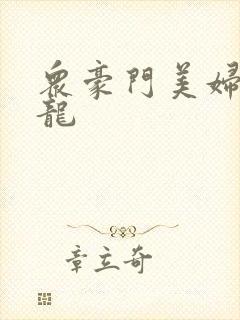 眾豪門美婦
龍
章立奇